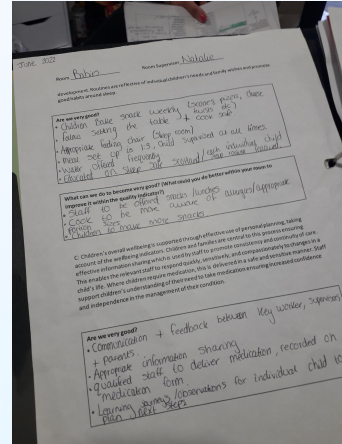 June 2022
Room Babies Room Supervisor Natalie
development. Routines are reflective of individual children's needs and family wishes and promote
good habits around sleep.
Are we very good?
• Children Bake snack weekly (scones, pizza, cheese
twists etc)
follow setting the table + cook
• Appropriate feeding chair (sleep room)
• meal set up in 1:3, child supervised at all times
• Water offered frequently
• Educated on sleep safe Scotland / each individual child
What can we do to become very good? (What could you do better within your room to
improve it within the quality indicator?)
• Staff to be offered snacks/lunches
• Cooks to be more aware of allergies/appropriate
portion sizes
• Children to make more snacks
C: Children's overall wellbeing is supported through effective use of personal planning, taking
account of the wellbeing indicators. Children and families are central to this process ensuring
effective information sharing which is used by staff to promote consistency and continuity of care.
This enables the relevant staff to respond quickly, sensitively, and compassionately to changes in a
child's life. Where children require medication, this is delivered in a safe and sensitive manner. Staff
support children's understanding of their need to take medication ensuring increased confidence
and independence in the management of their condition.
Are we very good?
• Communication + feedback between key worker, supervisors
+ parents.
• Appropriate information sharing
• qualified staff to deliver medication, recorded on
medication form.
• Learning journeys/observations for individual child to
plan next steps